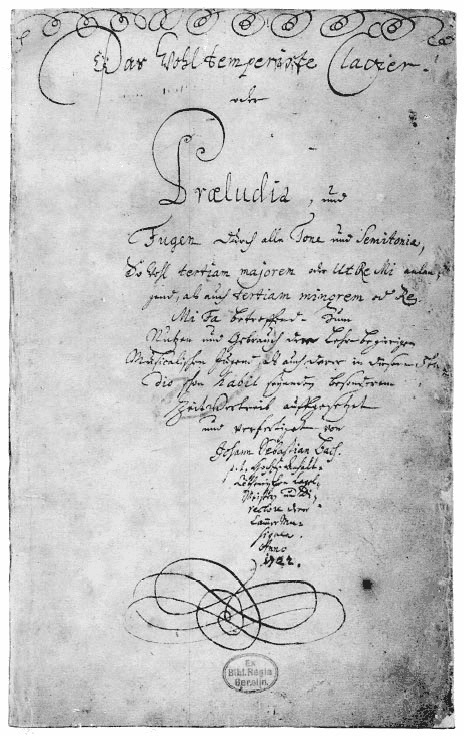 Das Wohl temperirte Clavier.
oder
Præludia, und
Fugen durch alle Tone und Semitonia,
So wohl tertiam majorem oder Ut Re Mi anlan-
gend, als auch tertiam minorem oder Re
Mi Fa betreffend. Zum
Nutzen und Gebrauch der Lehr-begierigen
Musicalischen Jugend, als auch derer in diesem stu-
dio schon habil seyenden besonderem
Zeitvertreib auffgesetzet
und verfertiget von
Johann Sebastian Bach.
p. t. Hochfürstlich Anhalt-
Cöthenischen Capel-
Meistern und Di-
rectore derer
Cammer Mu-
siquen.
Anno
1722.
Ex
Bibl. Regia
Berolin.